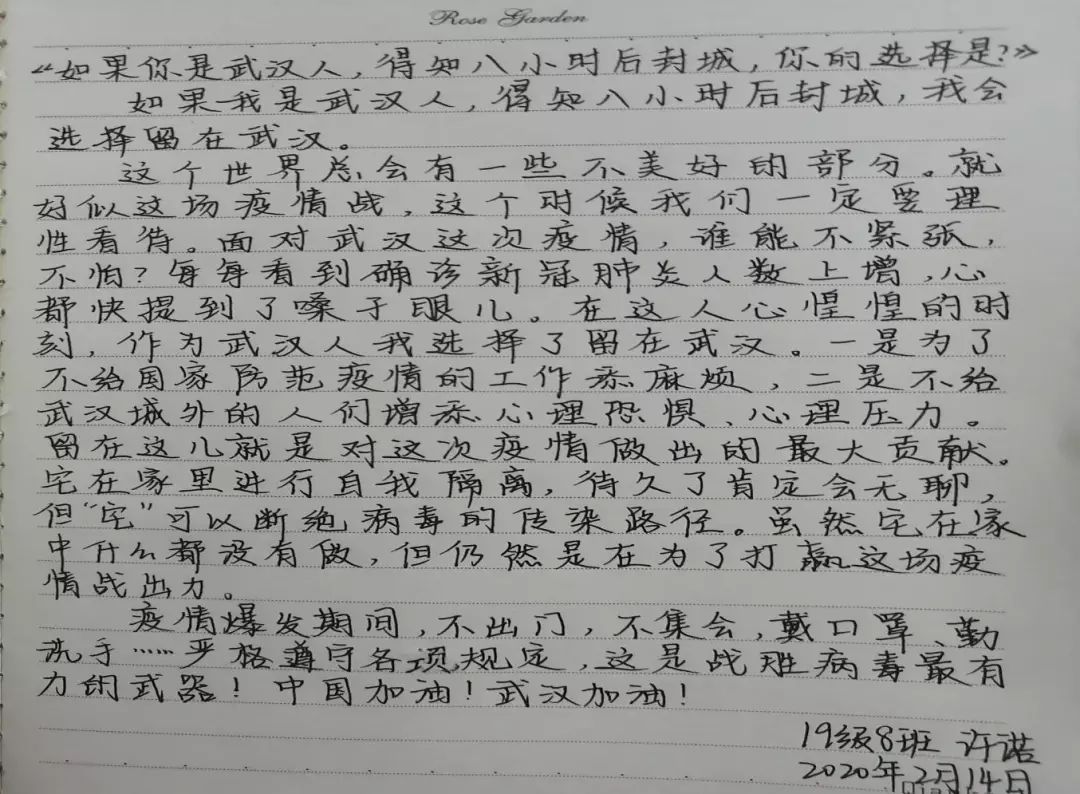 Rose Garden
《如果你是武汉人，得知八小时后封城，你的选择是?》
如果我是武汉人，得知八小时后封城，我会
选择留在武汉。
这个世界总会有一些不美好的部分。就
好似这场疫情战，这个时候我们一定要理
性看待。面对武汉这次疫情，谁能不紧张，
不怕？每每看到确诊新冠肺炎人数上增，心
都快提到了嗓子眼儿。在这人心惶惶的时
刻，作为武汉人我选择了留在武汉。一是为了
不给国家防范疫情的工作添麻烦，二是不给
武汉城外的人们增添心理恐惧、心理压力。
留在这儿就是对这次疫情做出的最大贡献。
宅在家里进行自我隔离，待久了肯定会无聊，
但“宅”可以断绝病毒的传染路径。虽然宅在家
中什么都没有做，但仍然是在为了打赢这场疫
情战出力。
疫情爆发期间，不出门，不集会，戴口罩、勤
洗手……严格遵守各项规定，这是战胜病毒最有
力的武器！中国加油！武汉加油！
19级8班 许诺
2020年2月14日